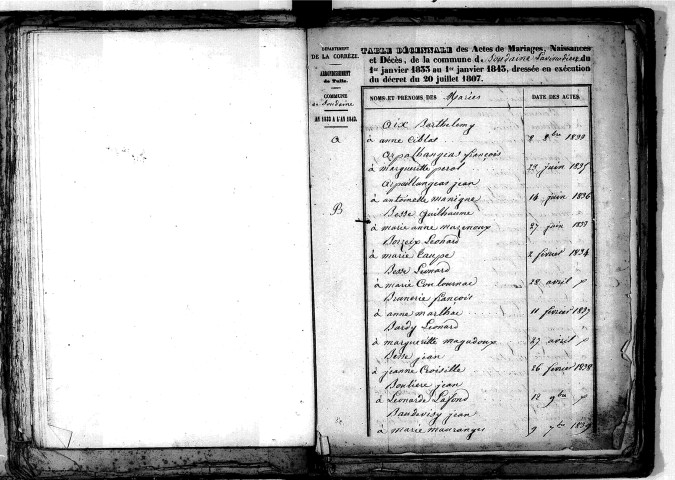 DÉPARTEMENT
DE LA CORRÈZE.
ARRONDISSEMENT
de Tulle.
COMMUNE
de Soudaine
AN 1833 À L'AN 1843.
TABLE DÉCENNALE des Actes de Mariages, Naissances
et Décès, de la commune d. Soudaine Lavinadière du
1er janvier 1833 au 1er janvier 1843, dressée en exécution
du décret du 20 juillet 1807.
NOMS ET PRÉNOMS DES Mariés DATE DES ACTES.
A
Aix Barthelemy
à anne Ciblas 8 8bre 1839
arpaillangeas françois
à marguerite perol 23 juin 1835
arpaillangeas jean
à antoinette manigne 14 juin 1836
B
Besse Guilhaume
à marie anne mazenoux 27 juin 1833
Borzeix Léonard
à marie Taupe 2 février 1834
Besse Léonard
à marie Coutournac 28 avril
Brunerie françois
à anne marthac 11 février 1837
Bardy Léonard
à marguerite magadoux 27 avril
Besse jean
à jeanne Croisille 26 février 1838
Boutiere jean
à Léonarde Lafond 12 9bre
jean
à marie mauranges 9 7bre 1839